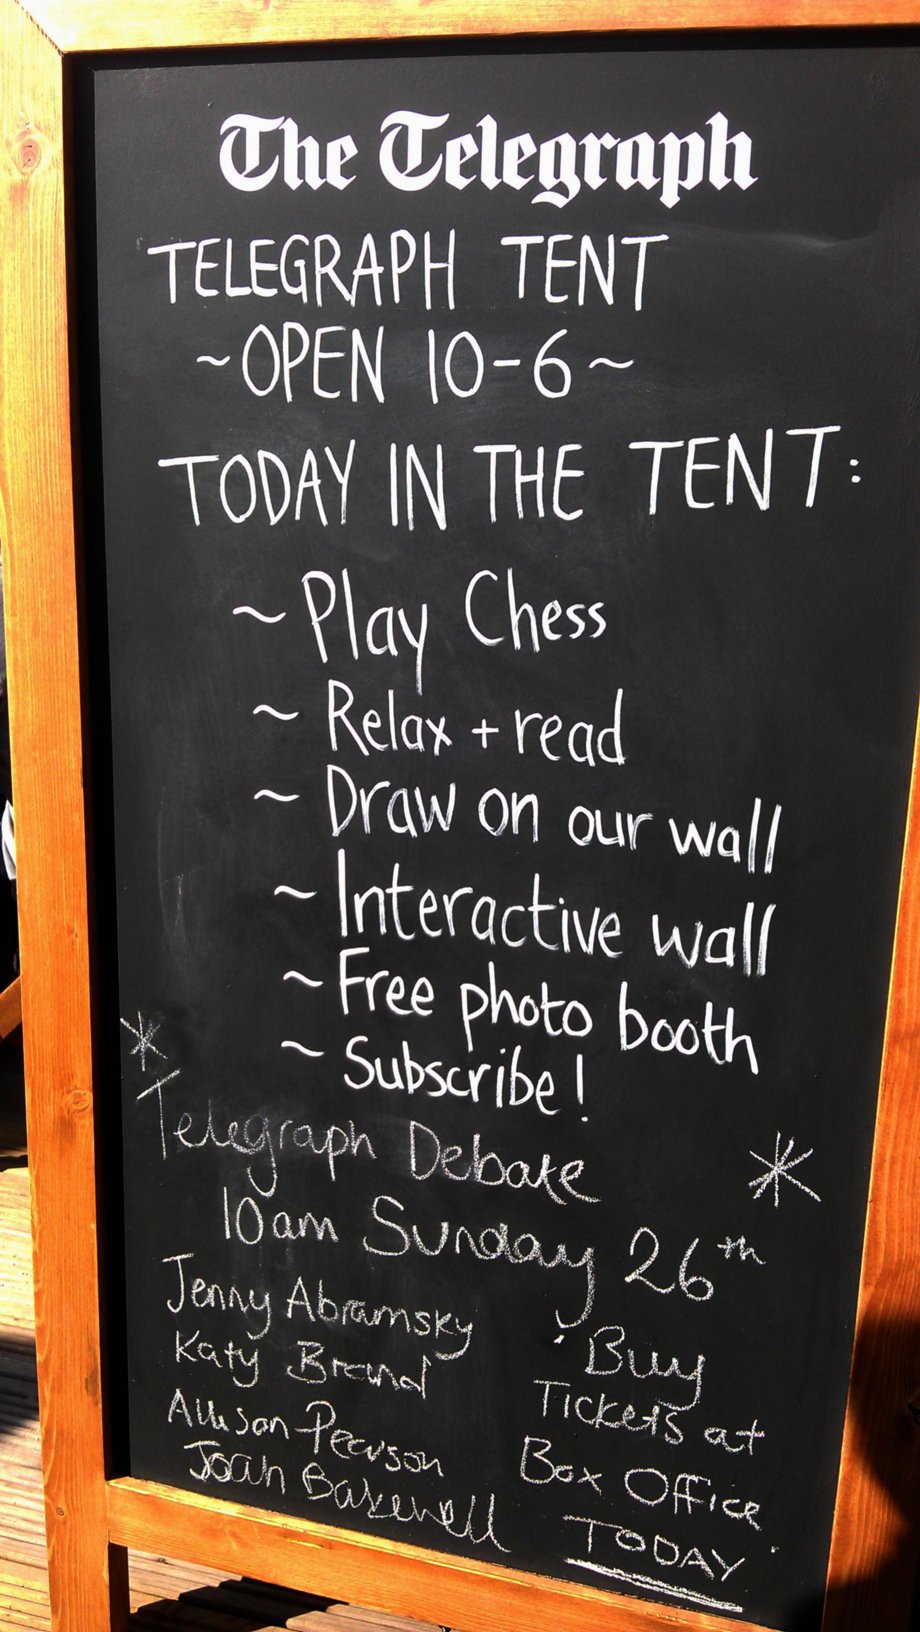 The Telegraph
TELEGRAPH TENT
~OPEN 10-6~
TODAY IN THE TENT:
~ Play Chess
~ Relax + read
~ Draw on our wall
~ Interactive wall
~ Free photo booth
~ Subscribe!
Telegraph Debate
10am Sunday 26th
Jenny Abramsky
Katy Brand
Allison Pearson
Joan Bakewell
Buy
Tickets at
Box Office
TODAY